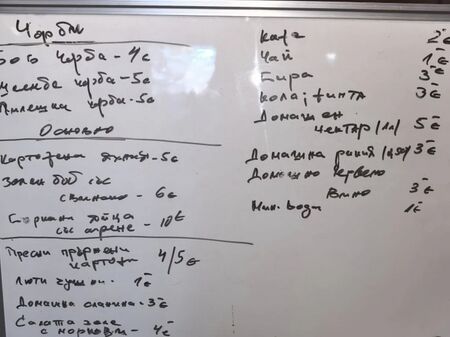 Чорби
Боб чорба - 4€
Шкембе чорба - 5€
Пилешка чорба - 5€
Основно
Картофена яхния - 5€
Зелен боб със
свинско - 6€
Бъркани яйца
със сирене - 10€
Пресни пържени
картофи 4/5€
Люти чушки - 1€
Домашна сланина - 3€
Салата зеле
с моркови - 4€
Кафе 2€
Чай 1€
Бира 3€
Кола; фанта 3€
Домашен
нектар /1л/ 5€
Домашна ракия /0,50/ 3€
Домашно червено
вино 3€
Мин. вода 1€